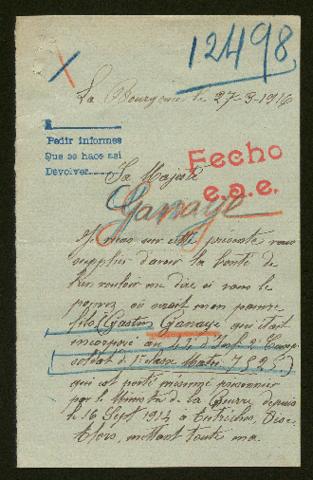 12498
La Bourgonce le 27-3-1916
Pedir informes
Que se hace así
Devolver
Fecho
e.a.e.
Sa Majesté
Ganaye
Je viens sur cette présente vous
supplier d'avoir la bonté de
bien vouloir me dire si vous le
pouvez où serait mon pauvre
fils (Gaston Ganaye qui était
incorporé au
soldat de 1e classe Mle 7525)
qui est porté présumé prisonnier
par le Ministre de la Guerre depuis
le 16 Sept 1914 à Autrèches, Oise
Alors, mettant toute ma